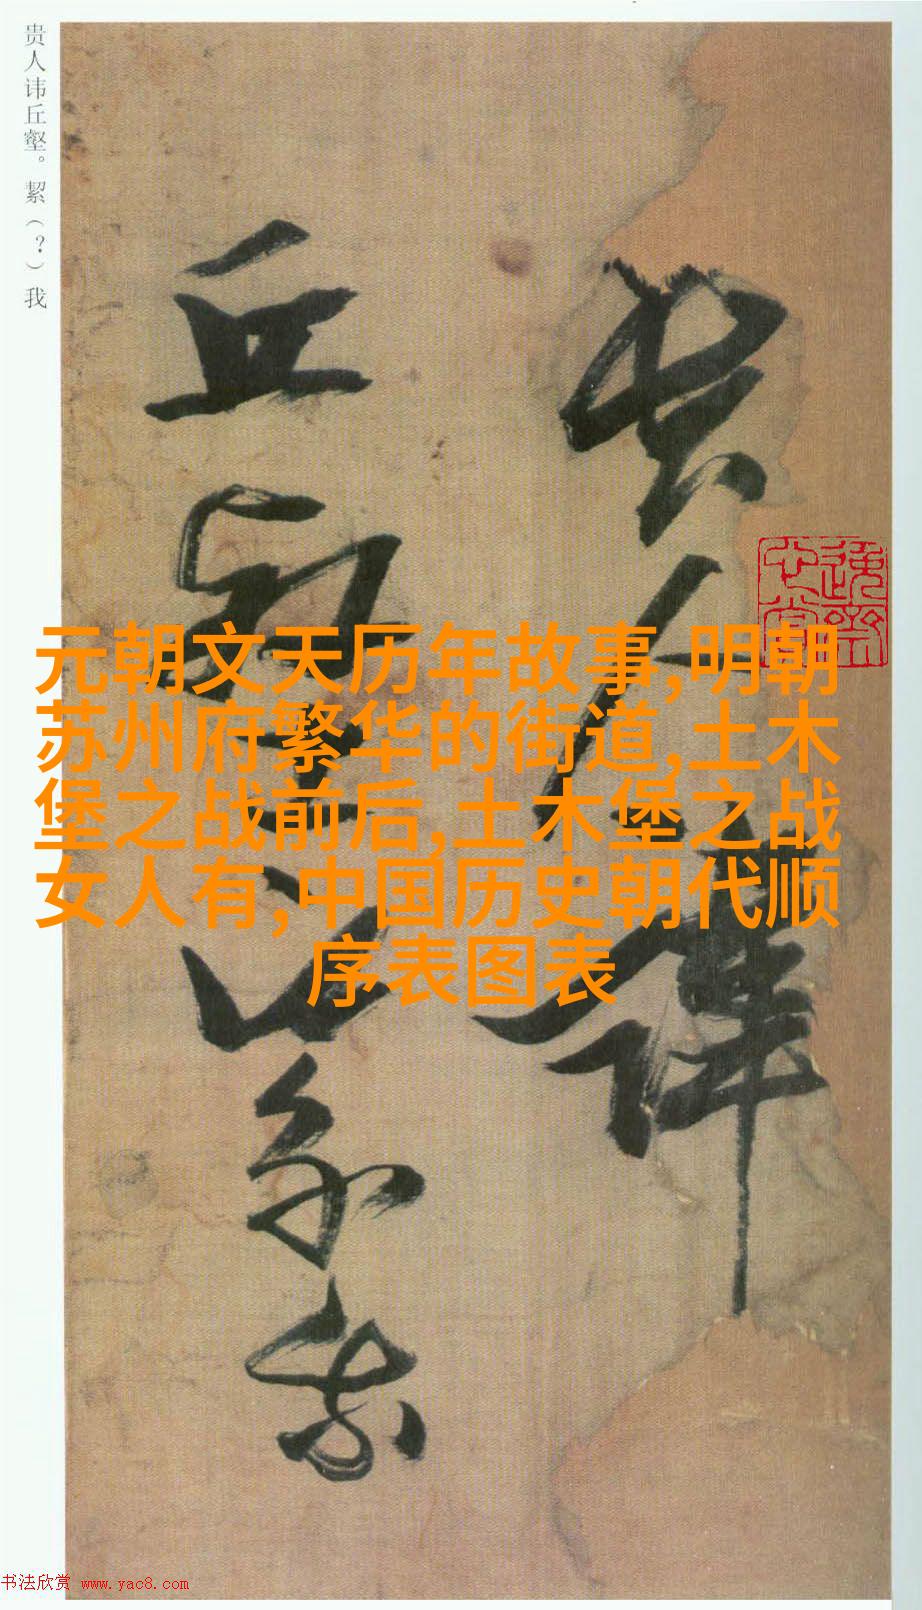 贵人讳丘壑。絜（？）我
贵人讳
丘壑
絜我
元朝文天历年故事,明朝
苏州府繁华的街道,土木
堡之战前后,土木堡之战
女人有,中国历史朝代顺
序表图表
书法欣赏 www.yac8.com